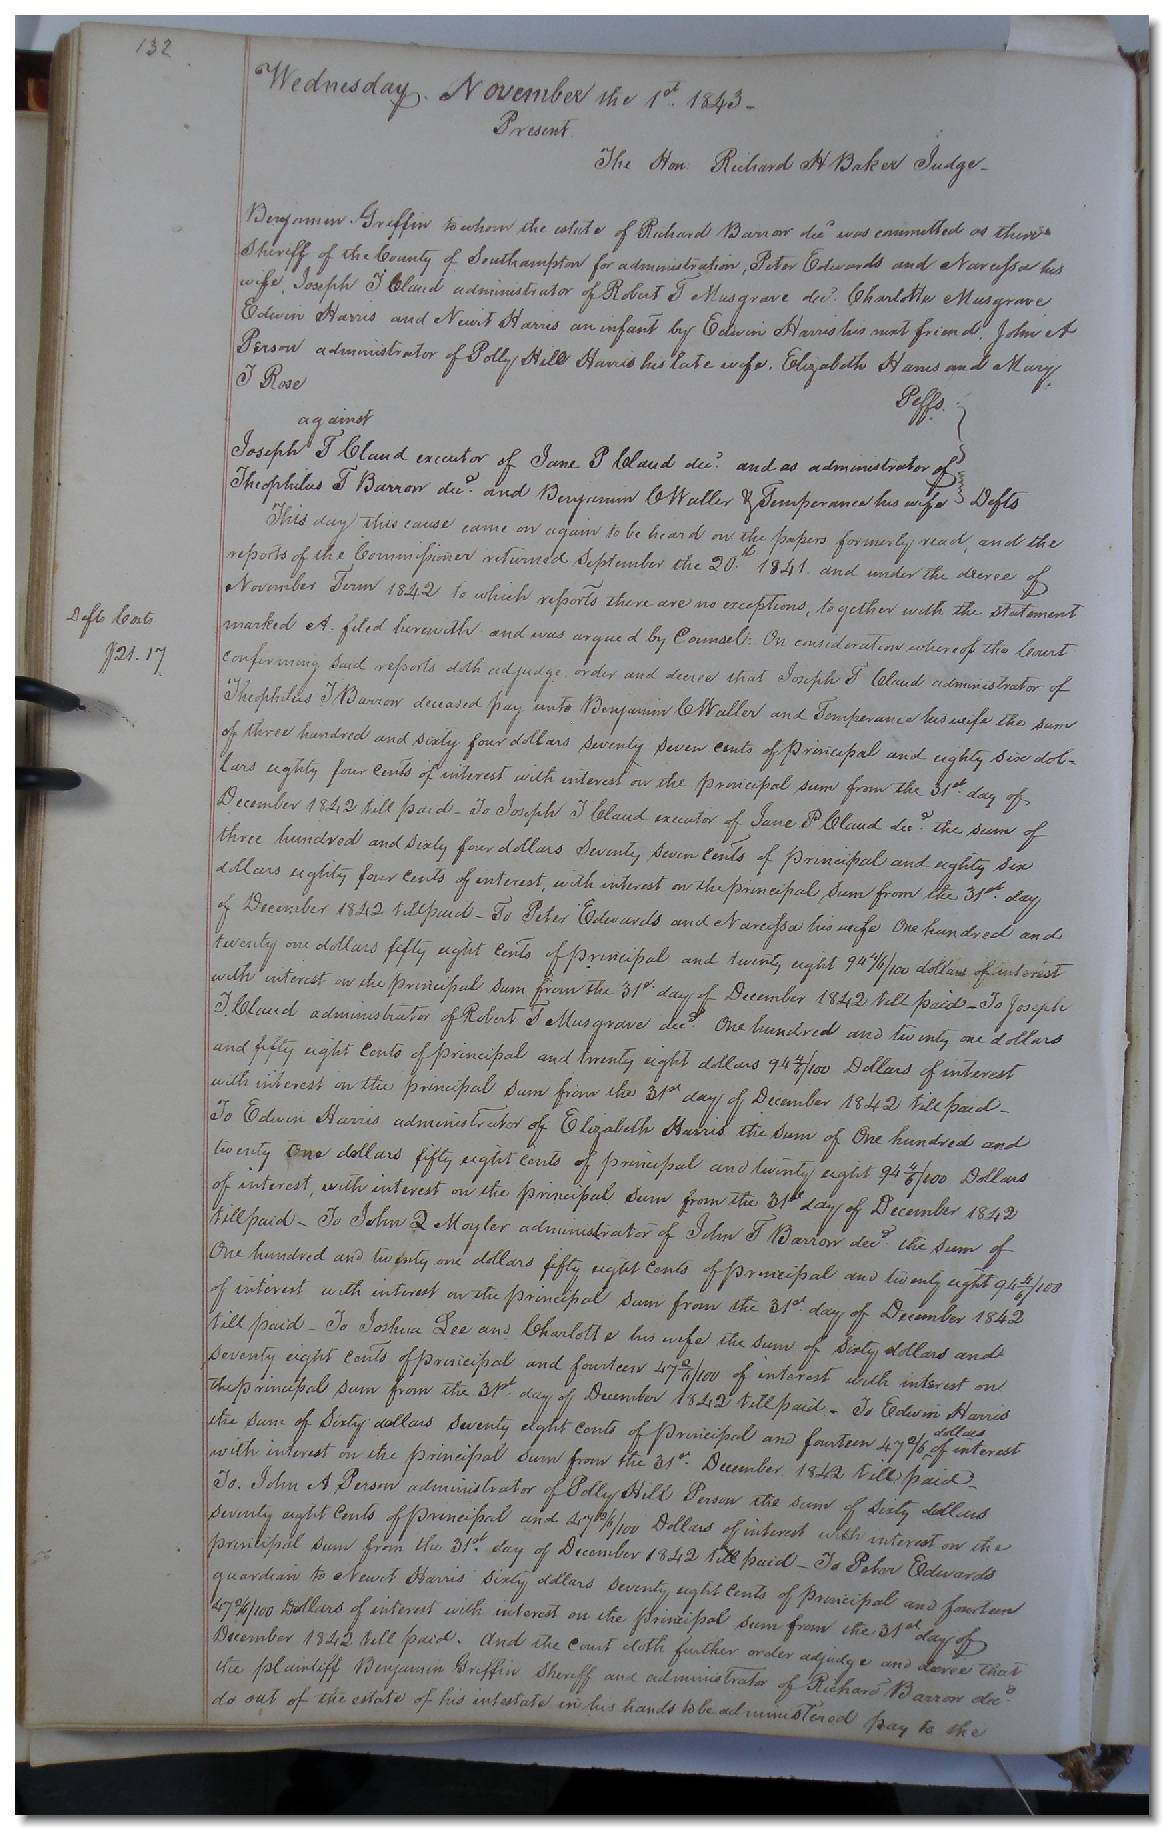 132
Wednesday. November the 1st. 1843-
Present
The Hon: Richard H Baker Judge-
Benjamin Griffin to whom the estate of Richard Barrow decd was committed as
Sheriff of the County of Southampton for administration, Peter Edwards and Narcissa his
wife, Joseph T Claud administrator of Robert T Musgrave decd. Charlotte Musgrave
Edwin Harris and Newit Harris an infant by Edwin Harris his next friend, John A
Person administrator of Polly Hill Harris his late wife, Elizabeth Harris and Mary
T Rose
Peffs.
against
Joseph T Claud executor of Jane P Claud decd. and as administrator of
Theophilus T Barrow decd. and Benjamin C Waller & Temperance his wife Defts
This day this cause came on again to be heard on the papers formerly read, and the
reports of the Commissioner returned September the 20th. 1841. and under the decree of
November Term 1842 to which reports there are no exceptions, together with the statement
marked A. filed herewith and was argued by Counsel: On consideration whereof the Court
Defts Costs
$21.17
confirming said reports doth adjudge order and decree that Joseph T Claud administrator of
Theophilus T Barrow deceased pay unto Benjamin C Waller and Temperance his wife the sum
of three hundred and sixty four dollars seventy seven cents of principal and eighty six dol-
lars eighty four cents of interest with interest on the principal sum from the 31st. day of
December 1842 till paid- To Joseph T Claud executor of Jane P Claud decd. the sum of
three hundred and sixty four dollars seventy seven cents of principal and eighty six
dollars eighty four cents of interest, with interest on the principal sum from the 31st. day
of December 1842 till paid- To Peter Edwards and Narcissa his wife One hundred and
twenty one dollars fifty eight cents of principal and twenty eight 94 4/6/100 dollars of interest
with interest on the principal sum from the 31st. day of December 1842 till paid- To Joseph
T. Claud administrator of Robert T Musgrave decd. One hundred and twenty one dollars
and fifty eight cents of principal and twenty eight dollars 94 4/6/100 Dollars of interest
with interest on the principal sum from the 31st day of December 1842 till paid-
To Edwin Harris administrator of Elizabeth Harris the sum of One hundred and
twenty One dollars fifty eight cents of principal and twenty eight 94 4/6/100 Dollars
of interest, with interest on the principal sum from the 31st day of December 1842
till paid- To John Q Moyler administrator of John T Barrow decd. the sum of
One hundred and twenty one dollars fifty eight cents of principal and twenty eight 94 4/6/100
of interest with interest on the principal sum from the 31st. day of December 1842
till paid- To Joshua Lee and Charlotte his wife the sum of Sixty dollars and
seventy eight cents of principal and fourteen 47 2/6/100 of interest with interest on
the principal sum from the 31st. day of December 1842 till paid- To Edwin Harris
the sum of Sixty dollars seventy eight cents of principal and fourteen 47 2/6 dollars of interest
with interest on the principal sum from the 31st. December 1842 till paid-
To. John A Person administrator of Polly Hill Person the sum of Sixty dollars
seventy eight cents of principal and 47 2/6/100 Dollars of interest with interest on the
principal sum from the 31st. day of December 1842 till paid- To Peter Edwards
guardian to Newit Harris Sixty dollars seventy eight cents of principal and fourteen
47 2/6/100 Dollars of interest with interest on the principal sum from the 31st day of
December 1842 till paid. And the court doth further order adjudge and decree that
the plaintiff Benjamin Griffin Sheriff and administrator of Richard Barrow decd.
do out of the estate of his intestate in his hands to be administered pay to the